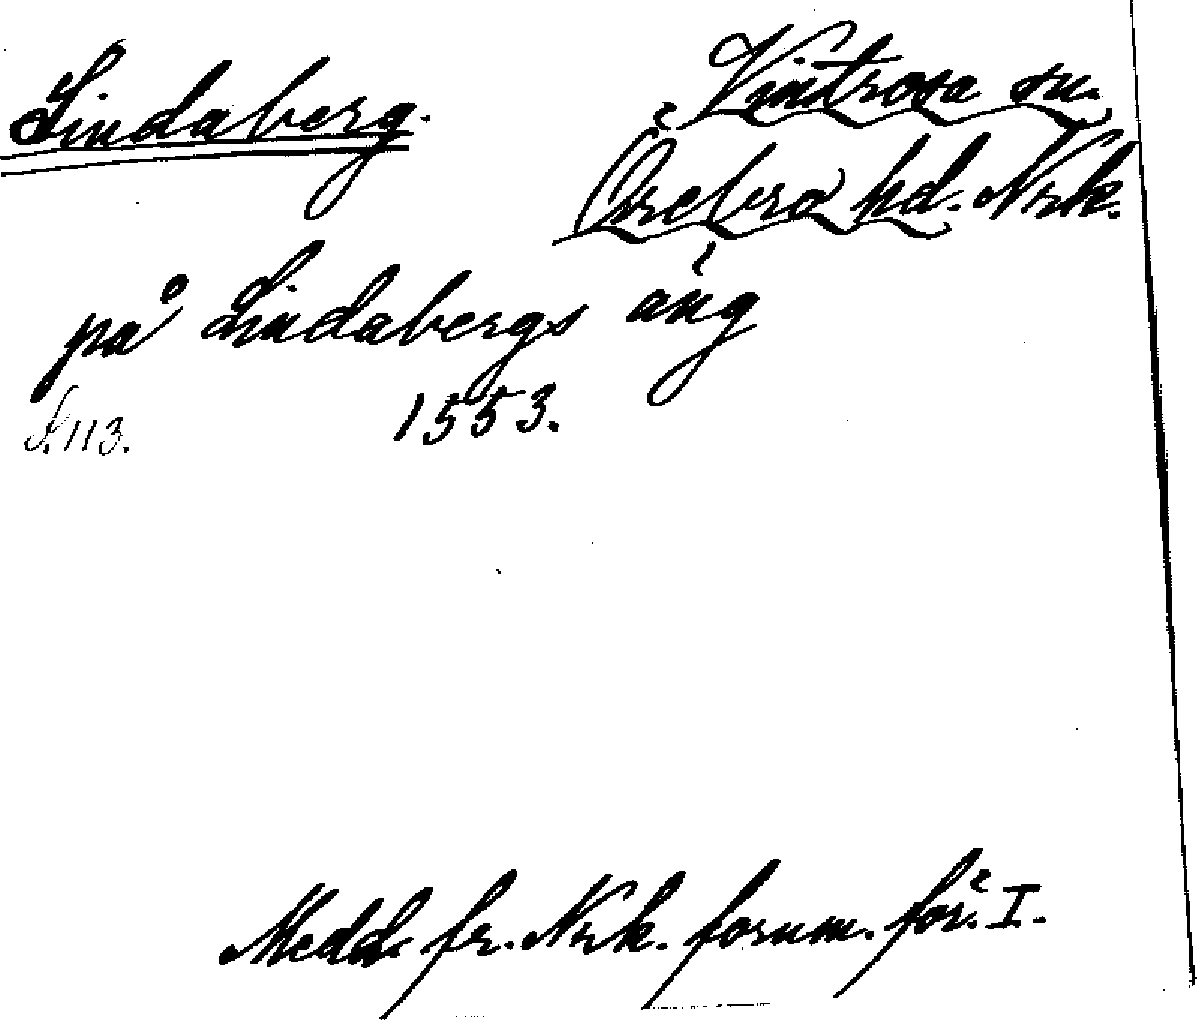 Lindaberg.
Vintrosa sn.
Örebro hd. Nrk.
på Lindabergs äng
S. 113. 1553.
Medd. fr. Nrk. fornm. för. I.